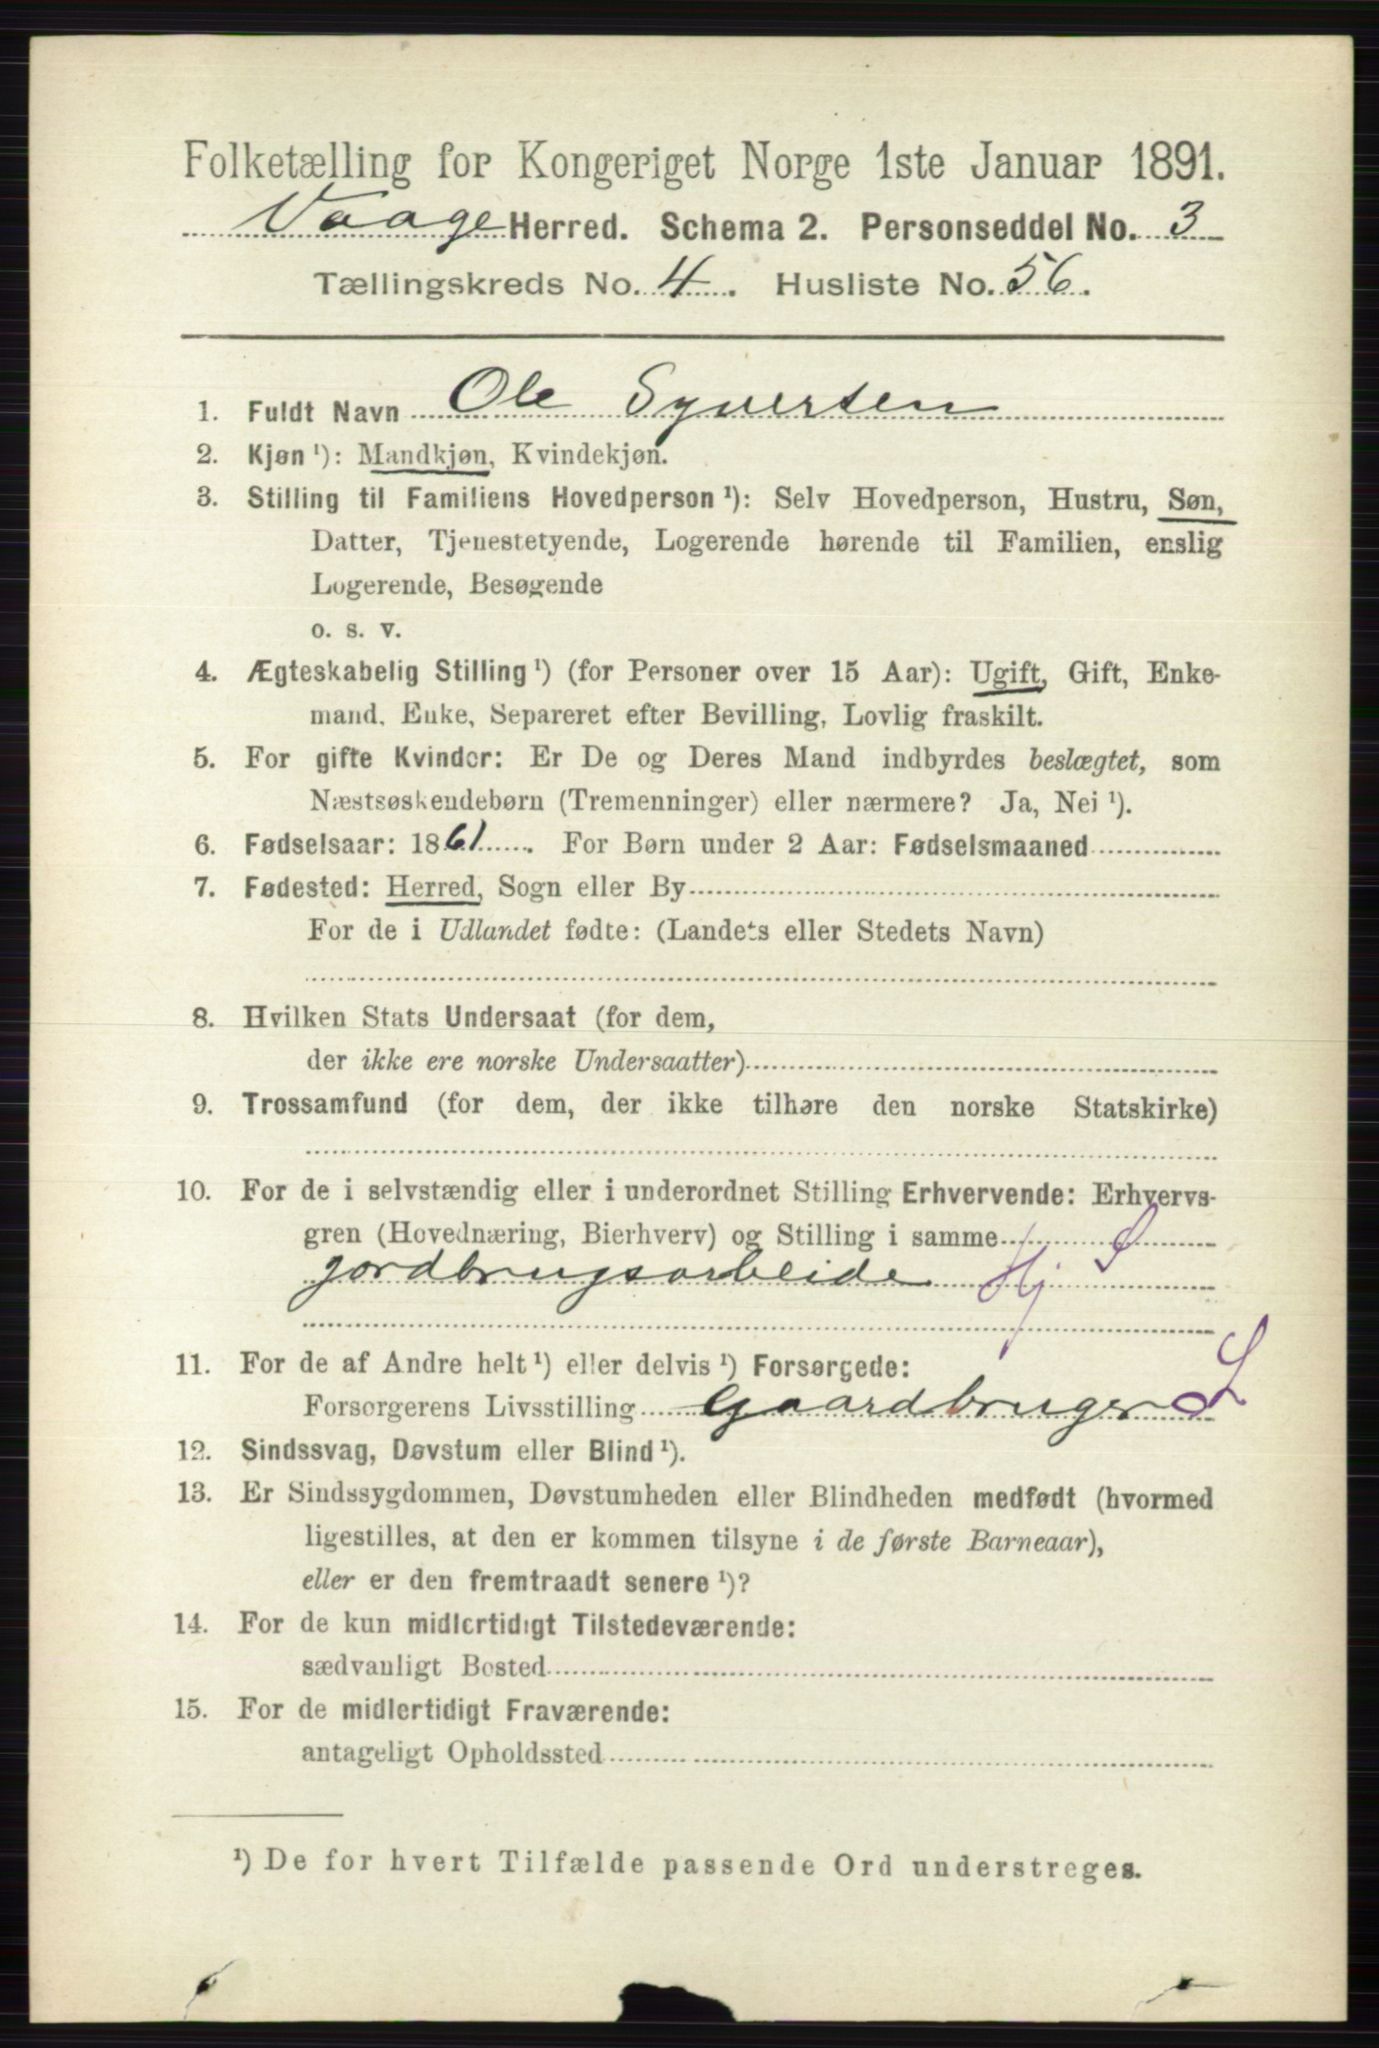 Folketælling for Kongeriget Norge 1ste Januar 1891.
Vaage Herred. Schema 2. Personseddel No. 3
Tællingskreds No. 4. Husliste No. 56.
1. Fuldt Navn Ole Syversen
2. Kjøn ¹): Mandkjøn, Kvindekjøn.
3. Stilling til Familiens Hovedperson ¹): Selv Hovedperson, Hustru, Søn,
Datter, Tjenestetyende, Logerende hørende til Familien, enslig
Logerende, Besøgende
o. s. v.
4. Ægteskabelig Stilling ¹) (for Personer over 15 Aar): Ugift, Gift, Enke-
mand, Enke, Separeret efter Bevilling, Lovlig fraskilt.
5. For gifte Kvinder: Er De og Deres Mand indbyrdes beslægtet, som
Næstsøskendebørn (Tremenninger) eller nærmere? Ja, Nei ¹).
6. Fødselsaar: 1861. For Børn under 2 Aar: Fødselsmaaned
7. Fødested: Herred, Sogn eller By
For de i Udlandet fødte: (Landets eller Stedets Navn)
8. Hvilken Stats Undersaat (for dem,
der ikke ere norske Undersaatter)
9. Trossamfund (for dem, der ikke tilhøre den norske Statskirke)
10. For de i selvstændig eller i underordnet Stilling Erhvervende: Erhvervs-
gren (Hovednæring, Bierhverv) og Stilling i samme S
jordbrugsarbeide Hj
11. For de af Andre helt ¹) eller delvis ¹) Forsørgede:
Forsorgerens Livsstilling Gaardbruger S
12. Sindssvag, Døvstum eller Blind ¹).
13. Er Sindssygdommen, Døvstumheden eller Blindheden medfødt (hvormed
ligestilles, at den er kommen tilsyne i de første Barneaar),
eller er den fremtraadt senere ¹)?
14. For de kun midlertidigt Tilstedeværende:
sædvanligt Bosted
15. For de midlertidigt Fraværende:
antageligt Opholdssted
¹) De for hvert Tilfælde passende Ord understreges.